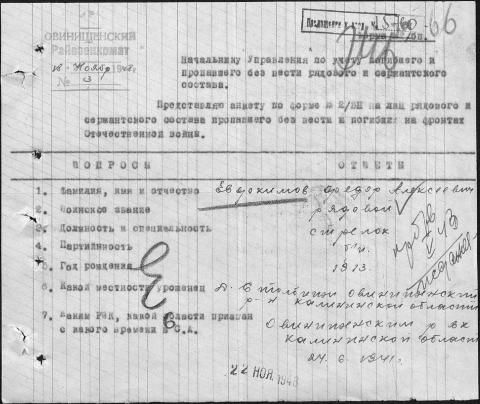 ОВИНИЩЕНСКИЙ
Райвоенкомат
Ноябр 194
№ 31
Начальнику Управления по учету погибшего и
пропавшего без вести рядового и сержантского
состава.
Представляю анкету по форме № 2/БП на лиц рядового и
сержантского состава пропавшего без вести и погибших на фронтах
Отечественной войны.
ВОПРОСЫ ОТВЕТЫ
1. Фамилия, имя и отчество Евдокимов Федор Алексеевич
2. Воинское звание рядовой
3. Должность и специальность стрелок
4. Партийность б/п.
5. Год рождения 1913.
6. Какой местности уроженец Овинищенский
р-н Калининской области
7. Каким РВК, какой области призван Овинищенским РВК
с какого времени в С.А. Калининской област
24.6.1941г.
22 НОЯ. 1948